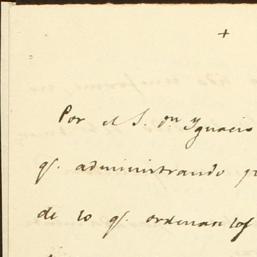 +
Por el S. dn Ygnacio
q. administrando
de lo q. ordenan los